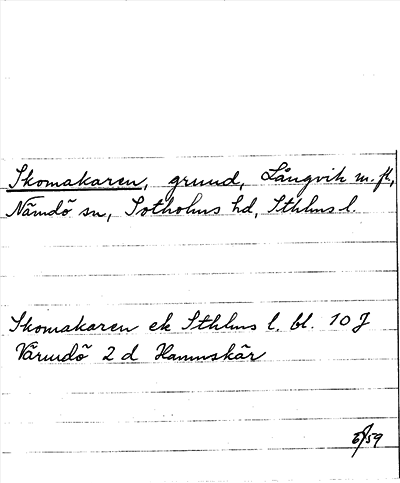 Skomakaren, grund, Långvik m. fl,
Nämdö sn, Sotholms hd, Sthlms l.
Skomakaren ek Sthlms l. bl. 10 J
Värmdö 2 d Hamnskär